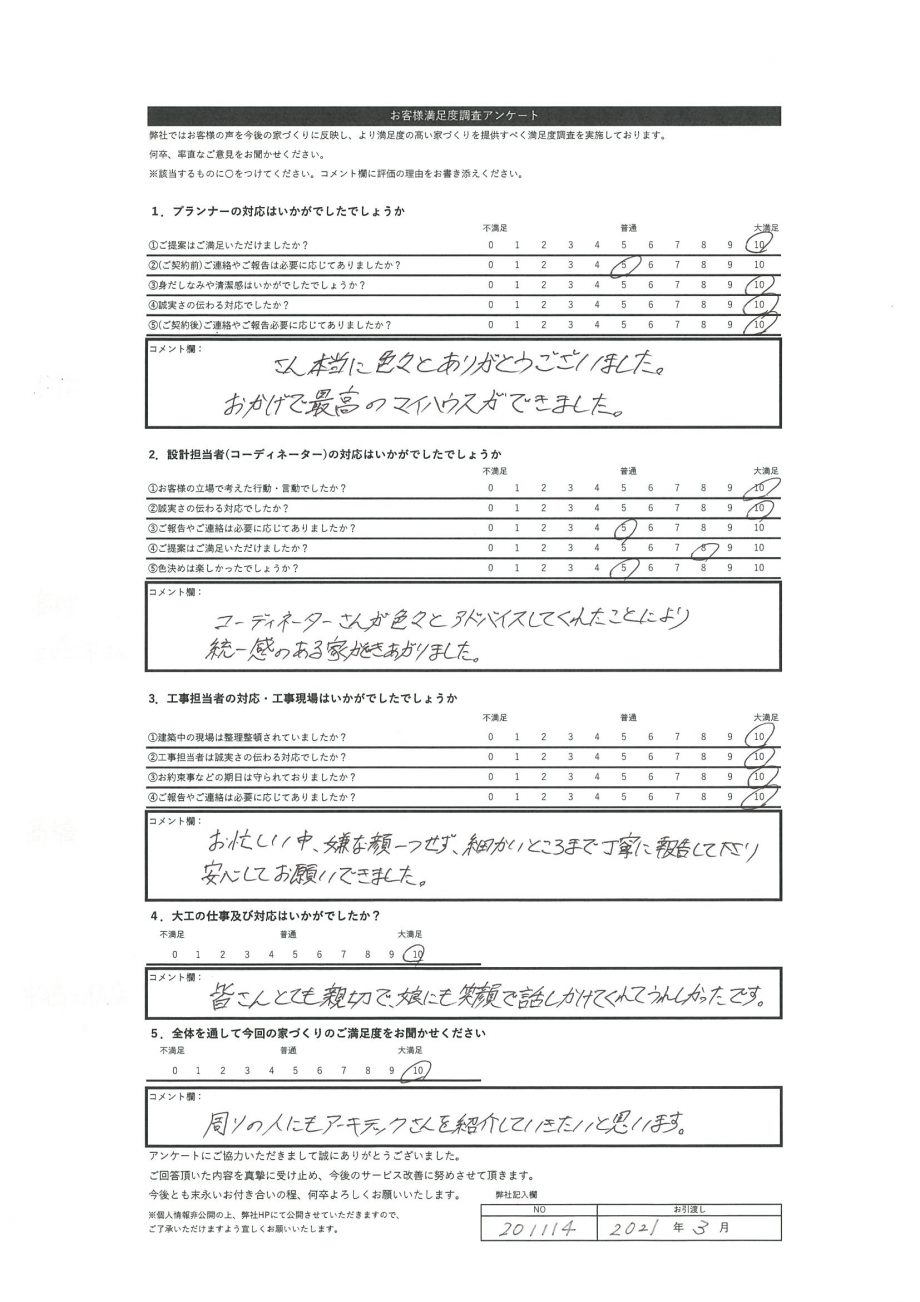 お客様満足度調査アンケート
弊社ではお客様の声を今後の家づくりに反映し、より満足度の高い家づくりを提供すべく満足度調査を実施しております。
何卒、率直なご意見をお聞かせください。
※該当するものに〇をつけてください。コメント欄に評価の理由をお書き添えください。
1．プランナーの対応はいかがでしたでしょうか
不満足 普通 大満足
①ご提案はご満足いただけましたか？ 0 1 2 3 4 5 6 7 8 9 10
②(ご契約前)ご連絡やご報告は必要に応じてありましたか？ 0 1 2 3 4 5 6 7 8 9 10
③身だしなみや清潔感はいかがでしたでしょうか？ 0 1 2 3 4 5 6 7 8 9 10
④誠実さの伝わる対応でしたか？ 0 1 2 3 4 5 6 7 8 9 10
⑤(ご契約後)ご連絡やご報告必要に応じてありましたか？ 0 1 2 3 4 5 6 7 8 9 10
コメント欄：
さん本当に色々とありがとうございました。
おかげで最高のマイハウスができました。
2．設計担当者(コーディネーター)の対応はいかがでしたでしょうか
不満足 普通 大満足
①お客様の立場で考えた行動・言動でしたか？ 0 1 2 3 4 5 6 7 8 9 10
②誠実さの伝わる対応でしたか？ 0 1 2 3 4 5 6 7 8 9 10
③ご報告やご連絡は必要に応じてありましたか？ 0 1 2 3 4 5 6 7 8 9 10
④ご提案はご満足いただけましたか？ 0 1 2 3 4 5 6 7 8 9 10
⑤色決めは楽しかったでしょうか？ 0 1 2 3 4 5 6 7 8 9 10
コメント欄：
コーディネーターさんが色々とアドバイスしてくれたことにより
統一感のある家ができあがりました。
3．工事担当者の対応・工事現場はいかがでしたでしょうか
不満足 普通 大満足
①建築中の現場は整理整頓されていましたか？ 0 1 2 3 4 5 6 7 8 9 10
②工事担当者は誠実さの伝わる対応でしたか？ 0 1 2 3 4 5 6 7 8 9 10
③お約束事などの期日は守られておりましたか？ 0 1 2 3 4 5 6 7 8 9 10
④ご報告やご連絡は必要に応じてありましたか？ 0 1 2 3 4 5 6 7 8 9 10
コメント欄：
お忙しい中、嫌な顔一つせず、細かいところまで丁寧に報告して下さり
安心してお願いできました。
4．大工の仕事及び対応はいかがでしたか？
不満足 普通 大満足
0 1 2 3 4 5 6 7 8 9 10
コメント欄：
皆さんとても親切で、娘にも笑顔で話しかけてくれてうれしかったです。
5．全体を通して今回の家づくりのご満足度をお聞かせください
不満足 普通 大満足
0 1 2 3 4 5 6 7 8 9 10
コメント欄：
周りの人にもアーキテックさんを紹介していきたいと思います。
アンケートにご協力いただきまして誠にありがとうございました。
ご回答頂いた内容を真摯に受け止め、今後のサービス改善に努めさせて頂きます。
今後とも末永いお付き合いの程、何卒よろしくお願いいたします。
※個人情報非公開の上、弊社HPにて公開させていただきますので、
ご了承いただけますよう宜しくお願いいたします。
弊社記入欄
NO お引渡し
201114 2021年3月